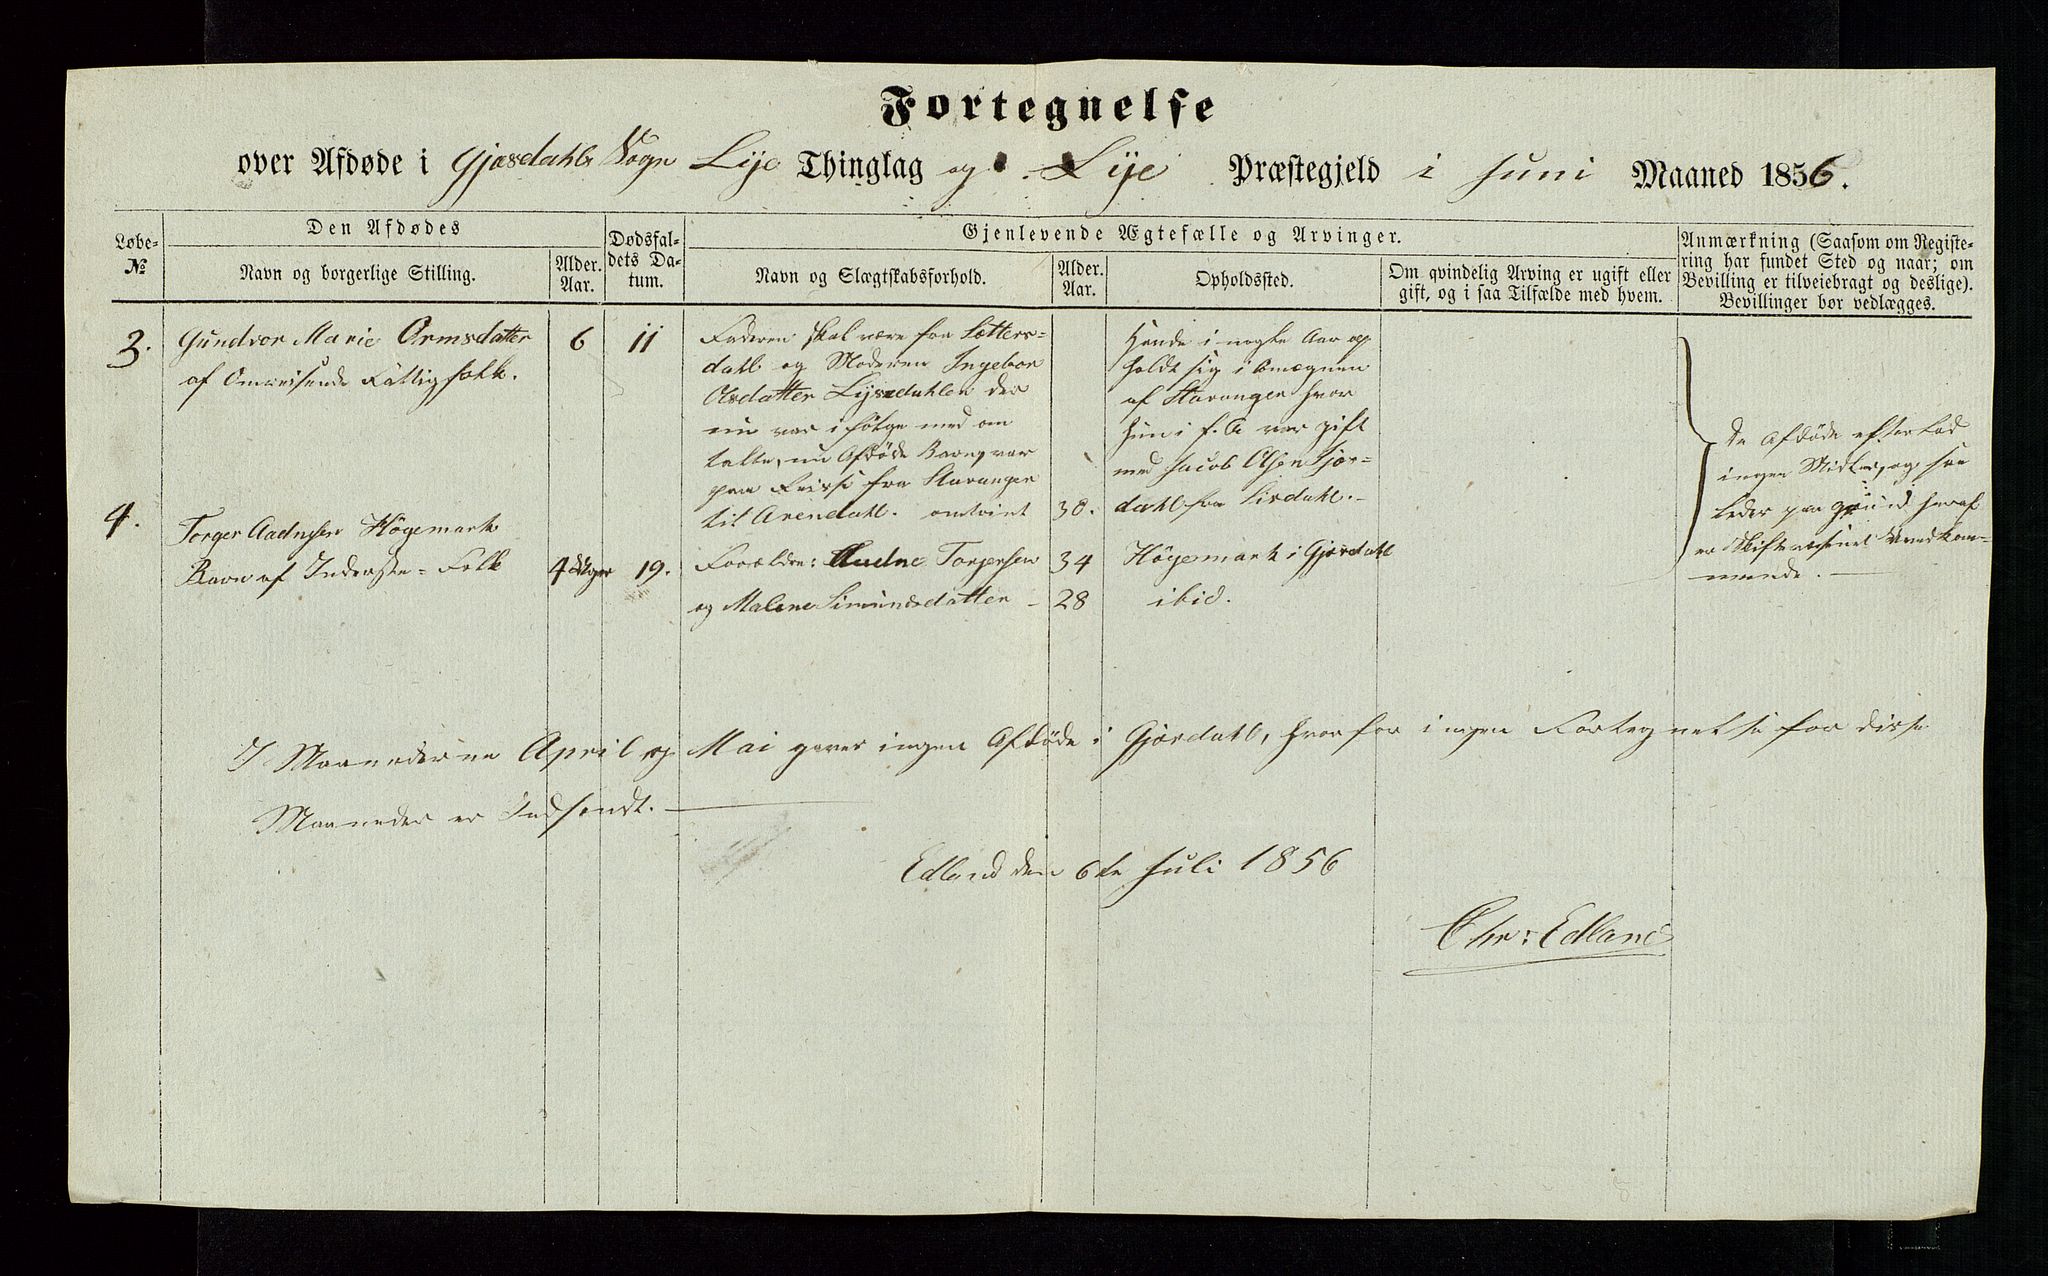 Fortegnelse
over Afdøde i Gjæsdahls Sogn Lye Thinglag og Lye Præstegjeld i Juni Maaned 1856.
Løbe-
№
Den Afdødes
Navn og borgerlige Stilling.
Alder.
Aar.
Dødsfal-
dets Da-
tum.
Gjenlevende Ægtefælle og Arvinger.
Navn og Slægtskabsforhold.
Alder.
Aar.
Opholdssted.
Om qvindelig Arving er ugift eller
gift, og i saa Tilfælde med hvem.
Anmærkning (Saasom om Registe-
ring har fundet Sted og naar; om
Bevilling er tilveiebragt og deslige).
Bevillinger bør vedlægges.
3.
Gundvor Marie Ormsdatter
af Omreisende Fattigfolk.
6
11
Faderen skal være fra Sætters-
dahl og Moderen Ingebor
Olsdatter Lysedahlen der
nu var i følge med om
talte, nu Afdøde Barn, var
paa Reise fra Stavanger
til Arendahl. omtrint
30.
Havde i nogle Aar op
holdt sig i Omegnen
af Stavanger hvor
hun i f. A var gift
med Jacob Olsen
dahl fra Sirdahl.-
4.
Torger Aadnesen Høgemark
Barn af Inderste-Folk
4 Uger
19.
Forældre: Audne Torgersen
og Malene Simundsdatter -
34
28
Høgemark i Gjæsdahl
ibid.
De Afdøde efterlod
ingen Midler, og saa
leder paa Grund heraf
er Skiftevæsenet Uvedkom-
mende.
I Maanederne April og Mai gaves ingen Afdøde i Gjæsdahl, hvorfor ingen Fortegnelse for disse
Maaneder er Indsendt.
Edland den 6te Juli 1856
Chr: Edland